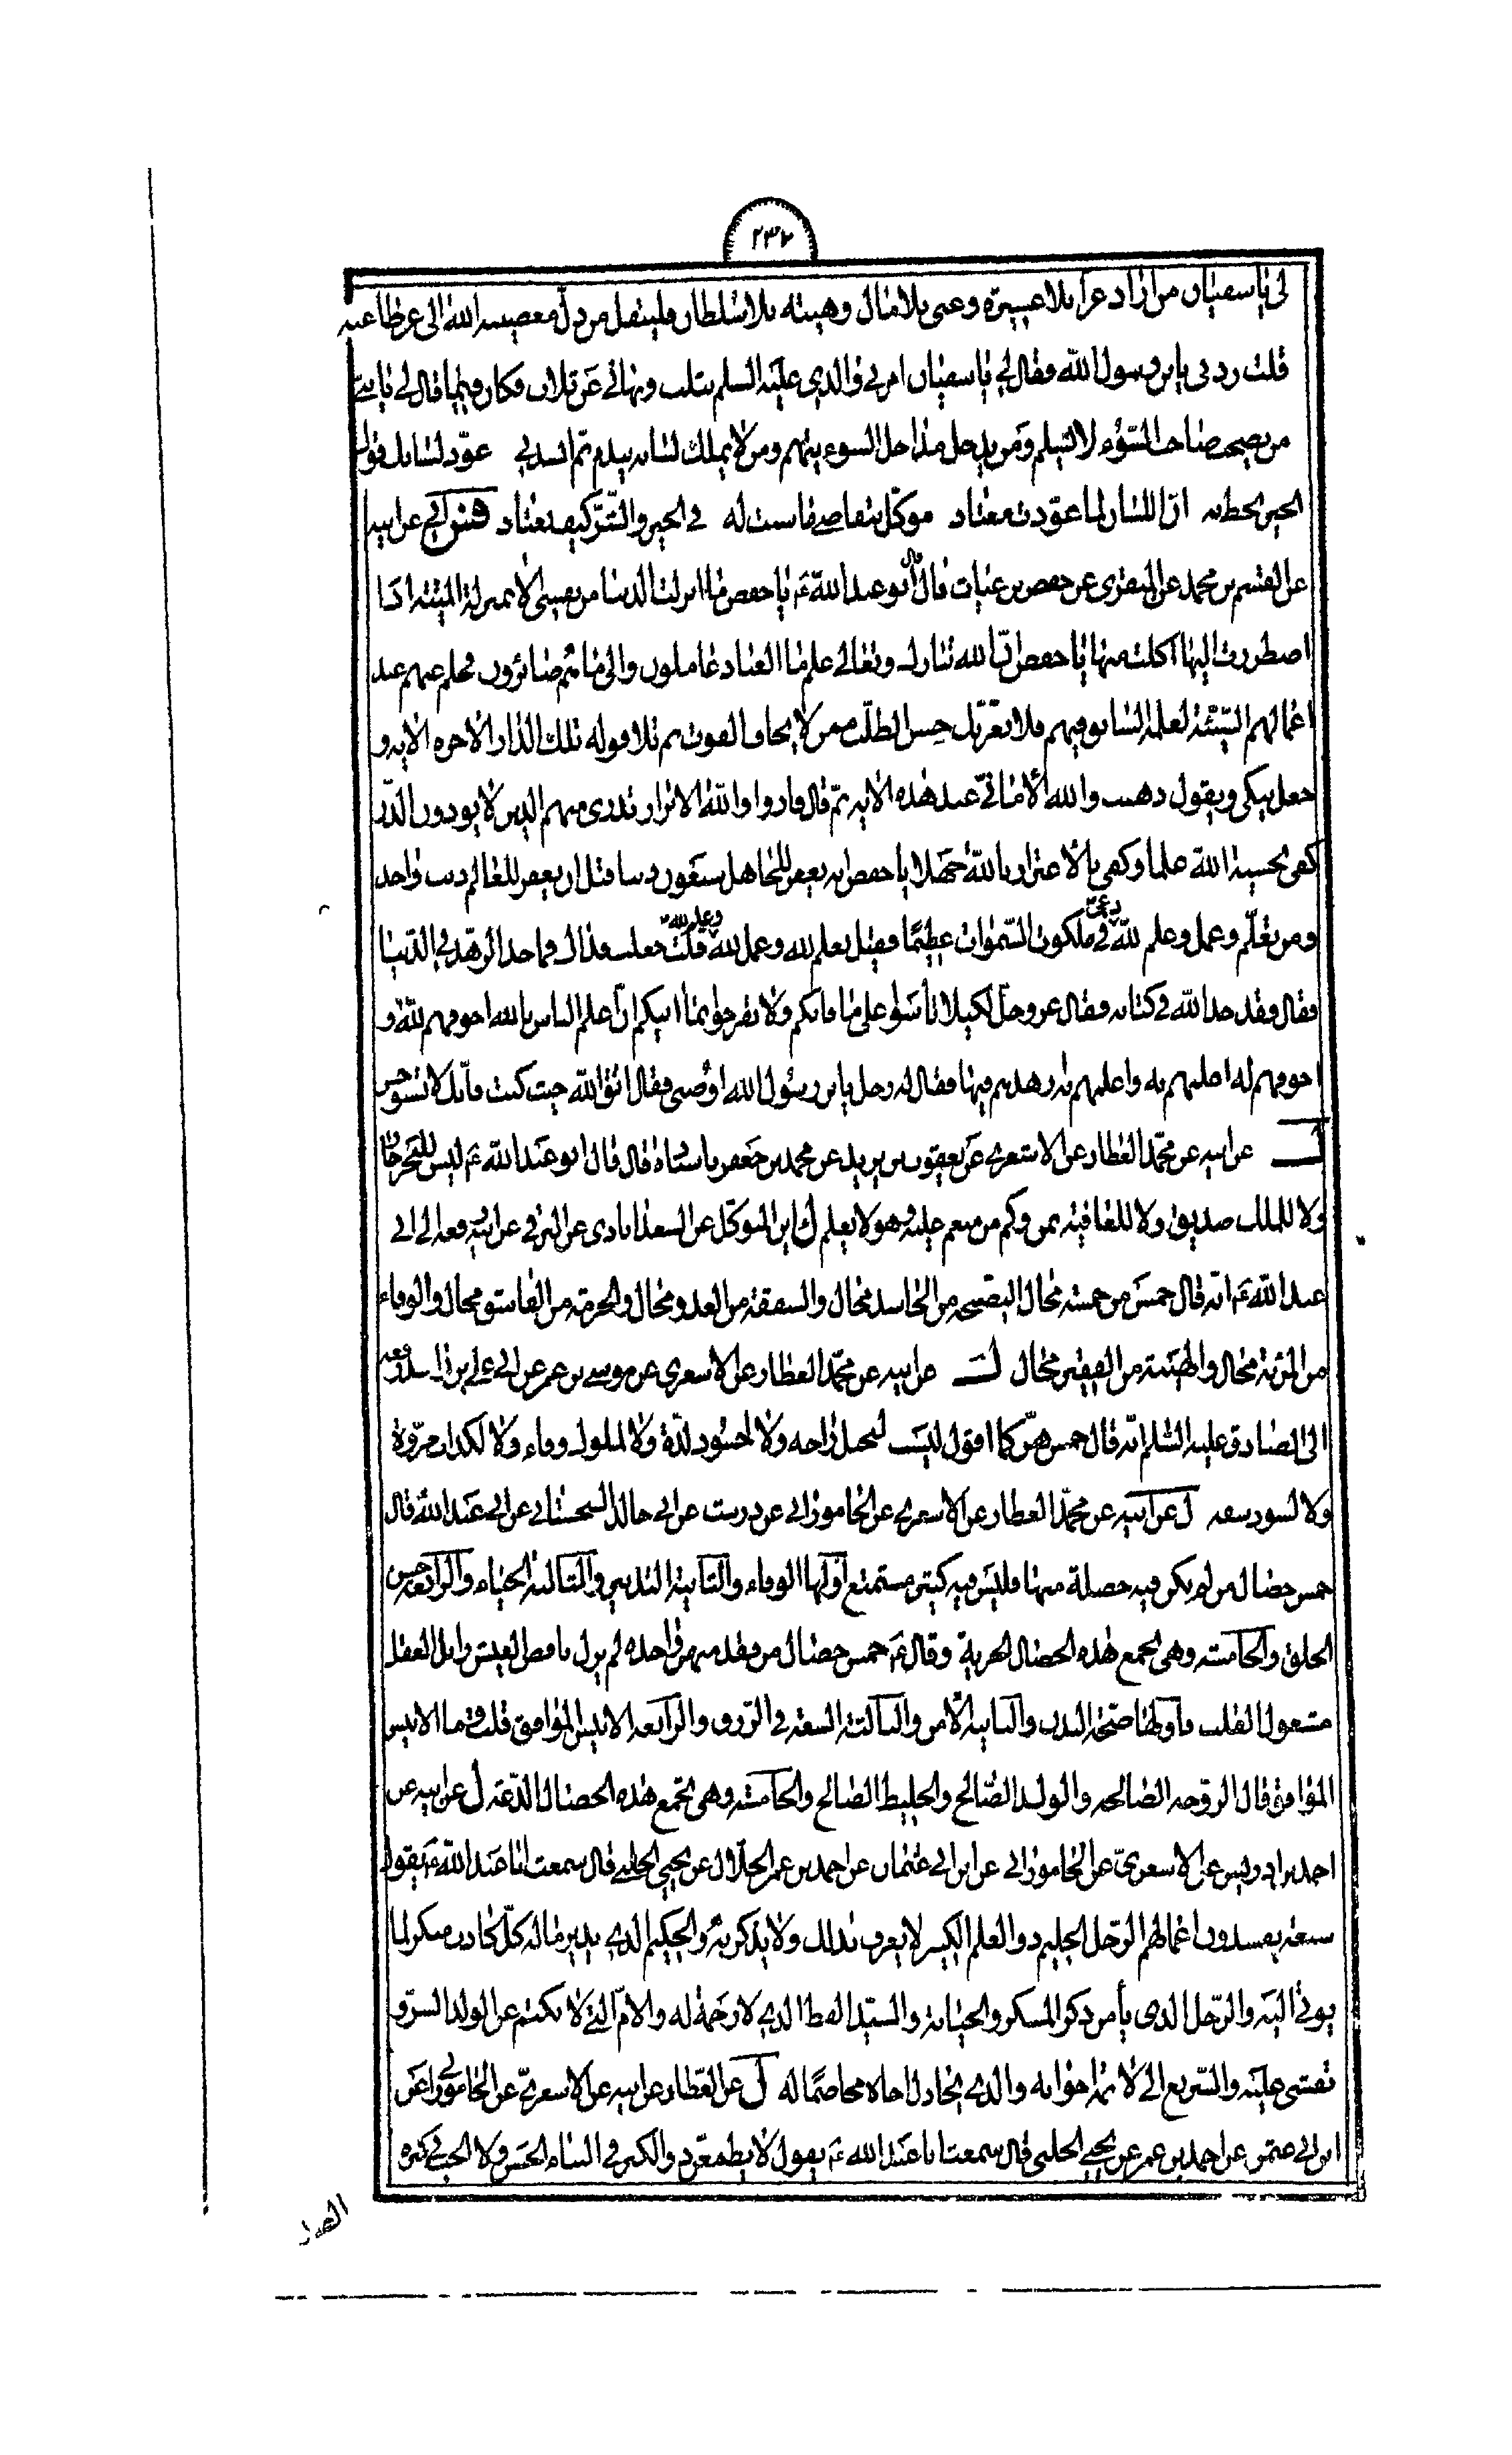 ٢٣٧
لي يا سفيان من اراد عزا بلا عشيرة وغنى بلا مال وهيبة بلا سلطان فلينقل من ذل معصية الله الى عز طاعته
قلت زدني يا بن رسول الله فقال لي يا سفيان امرني والدي عليه السلم بثلث ونهاني عن ثلاث فكان فيما قال لي يا بني
من يصحب صاحب السوء لا يسلم ومن يدخل مداخل السوء يتهم ومن لا يملك لسانه يندم ثم انشدني عود لسانك قول
الخير تحظ به ان اللسان لما عودت معتاد موكل بتقاضي ما سننت له في الخير والشر كيف تعتاد فس ابي عن ابيه
عن القسم بن محمد عن المنقري عن حفص بن غياث قال قال ابو عبد الله ع يا حفص ما انزلت الدنيا من نفسي الا بمنزلة الميتة اذا
اضطررت اليها اكلت منها يا حفص ان الله تبارك وتعالى علم ما العباد عاملون والى ما هم صائرون فحلم عنهم عند
اعمالهم السيئة لعلمه السابق فيهم فلا يغرنك حسن الطلب ممن لا يخاف الفوت ثم تلا قوله تلك الدار الاخرة الاية و
جعل يبكي ويقول ذهبت والله الاماني عند هذه الاية ثم قال فازوا والله الابرار تدري من هم الذين لا يؤذون الذر
كفى بخشية الله علما وكفى بالاغترار بالله جهلا يا حفص انه يغفر للجاهل سبعون ذنبا قبل ان يغفر للعالم ذنب واحد
ومن تعلم وعمل وعلم لله دعي في ملكوت السموات عظيما فقيل تعلم لله وعمل لله وعلم لله قلت جعلت فداك فما حد الزهد في الدنيا
فقال فقد حد الله في كتابه فقال عز وجل لكيلا تأسوا على ما فاتكم ولا تفرحوا بما اتيكم ان اعلم الناس بالله اخوفهم لله و
اخوفهم له اعلمهم به واعلمهم به ازهدهم فيها فقال له رجل يا بن رسول الله اوصني فقال اتق الله حيث كنت فانك لا تستوحش
ل عن ابيه عن محمد العطار عن الاشعري عن يعقوب بن يزيد عن محمد بن جعفر باسناده قال قال ابو عبد الله ع ليس للبحر جار
ولا للملك صديق ولا للعافية ثمن وكم من منعم عليه وهو لا يعلم ل ابن المتوكل عن السعدابادي عن البرقي عن ابيه رفعه الى ابي
عبد الله ع انه قال خمس من خمسة محال النصيحة من الحاسد محال والشفقة من العدو محال والحرمة من الفاسق محال والوفاء
من المرئة محال والهيبة من الفقير محال ل عن ابيه عن محمد العطار عن الاشعري عن موسى بن عمر عن ابي علي بن راشد رفعه
الى الصادق عليه السلم انه قال خمس هن كما اقول ليست لبخيل راحة ولا لحسود لذة ولا لملوك وفاء ولا لكذاب مروة
ولا يسود سفيه ل عن ابيه عن محمد العطار عن الاشعري عن الجاموراني عن درست عن ابي خالد السجستاني عن ابي عبد الله قال
خمس خصال من لم يكن فيه خصلة منها فليس فيه كثير مستمتع اولها الوفاء والثانية التدبير والثالثة الحياء والرابعة حسن
الخلق والخامسة وهي تجمع هذه الخصال الحرية وقال ع خمس خصال من فقد منهن واحدة لم يزل ناقص العيش زايل العقل
مشغول القلب فاولها صحة البدن والثانية الامن والثالثة السعة في الرزق والرابعة الانيس الموافق قلت وما الانيس
الموافق قال الزوجة الصالحة والولد الصالح والخليط الصالح والخامسة وهي تجمع هذه الخصال الدعة ل عن ابيه عن
احمد بن ادريس عن الاشعري عن الجاموراني عن ابن ابي عثمان عن احمد بن عمر الحلال عن يحيى الحلبي قال سمعت ابا عبد الله ع يقول
سبعة يفسدون اعمالهم الرجل الحليم ذو العلم الكثير لا يعرف بذلك ولا يذكر به والحكيم الذي يدبر ماله كل كاذب منكر لما
يؤتى اليه والرجل الذي يأمن ذا المكر والخيانة والسيد الفظ الذي لا رحمة له والام التي لا تكتم عن الولد السر و
تفشي عليه والسريع الى لائمة اخوانه والذي يجادل اخاه مخاصما له ل عن العطار عن ابيه عن الاشعري عن الجاموراني عن
ابن ابي عثمن عن احمد بن عمر عن يحيى الحلبي قال سمعت ابا عبد الله ع يقول لا يطمعن ذو الكبر في الثناء الحسن ولا الخب في كثرة
الصديق